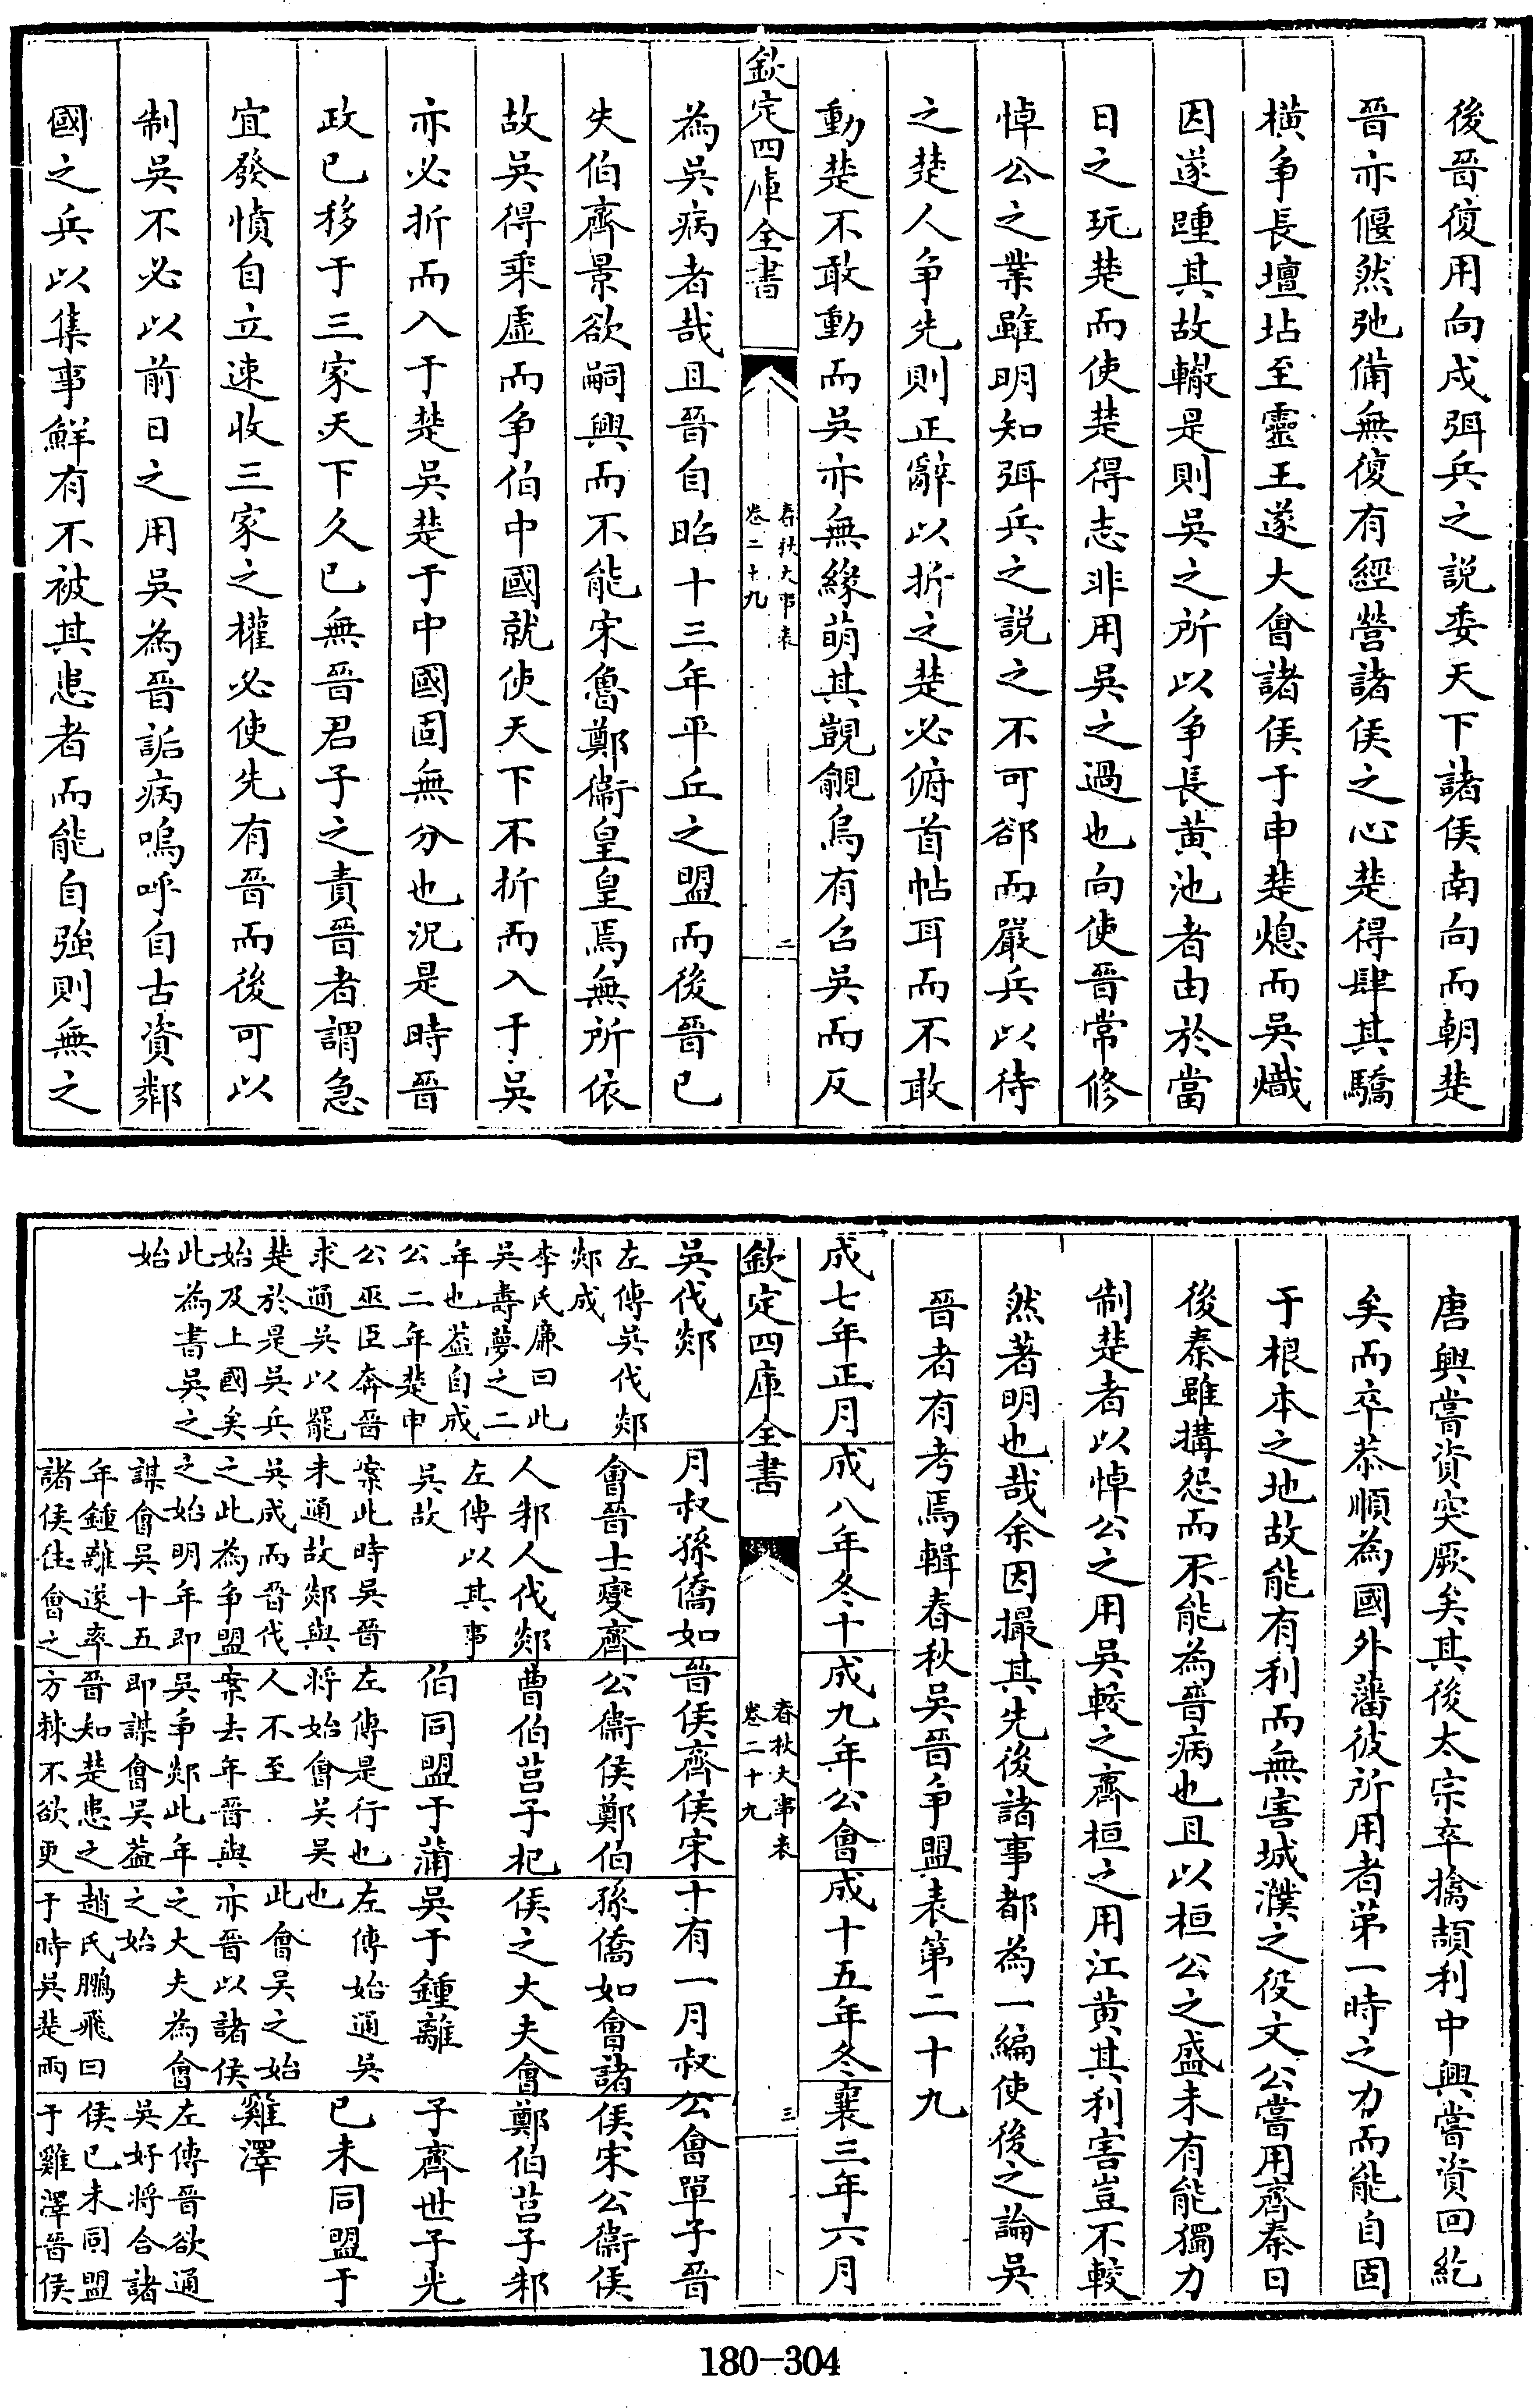 後晉復用向戌弭兵之説委天下諸侯南向而朝楚
晉亦偃然弛備無復有經營諸侯之心楚得肆其驕
橫争長壇坫至靈王遂大會諸侯于申楚熄而吳熾
因遂踵其故轍是則吳之所以争長黄池者由於當
日之玩楚而使楚得志非用吳之過也向使晉常修
悼公之業雖明知弭兵之説之不可郤而嚴兵以待
之楚人争先則正辭以折之楚必俯首帖耳而不敢
動楚不敢動而吳亦無緣萌其覬覦烏有召吳而反
欽定四庫全書
春秋大事表
卷二十九
二
為吳病者哉且晉自昭十三年平丘之盟而後晉已
失伯齊景欲嗣興而不能宋魯鄭衞皇皇焉無所依
故吳得乘虛而争伯中國就使天下不折而入于吳
亦必折而入于楚吳楚于中國固無分也況是時晉
政已移于三家天下久已無晉君子之責晉者謂急
宜發憤自立速收三家之權必使先有晉而後可以
制吳不必以前日之用吳為晉詬病嗚呼自古資鄰
國之兵以集事鮮有不被其患者而能自強則無之
唐興嘗資突厥矣其後太宗卒擒頡利中興嘗資回紇
矣而卒恭順為國外藩彼所用者第一時之力而能自固
于根本之地故能有利而無害城濮之役文公嘗用齊秦日
後秦雖搆怨而不能為晉病也且以桓公之盛未有能獨力
制楚者以悼公之用吳較之齊桓之用江黄其利害豈不較
然著明也哉余因撮其先後諸事都為一編使後之論吳
晉者有考焉輯春秋吳晉争盟表第二十九
成七年正月
吳伐郯
左傳吳伐郯
郯成
李氏廉曰此
吳壽夢之二
年也葢自成
公二年楚申
公巫臣奔晉
求通吳以罷
楚於是吳兵
始及上國矣
此為書吳之
始
成八年冬十
月叔孫僑如
會晉士燮齊
人邾人伐郯
左傳以其事
吳故
案此時吳晉
未通故郯與
吳成而晉伐
之此為争盟
之始明年即
謀會吳十五
年鍾離遂率
諸侯往會之
成九年公會
晉侯齊侯宋
公衞侯鄭伯
曹伯莒子杞
伯同盟于蒲
左傳是行也
将始會吳吳
人不至
案去年晉與
吳争郯此年
即謀會吳葢
晉知楚患之
方棘不欲更
成十五年冬
十有一月叔
孫僑如會諸
侯之大夫會
吳于鍾離
左傳始通吳
也
此會吳之始
亦晉以諸侯
之大夫為會
之始
趙氏鵬飛曰
于時吳楚兩
襄三年六月
公會單子晉
侯宋公衞侯
鄭伯莒子邾
子齊世子光
已未同盟于
雞澤
左傳晉欲通
吳好将合諸
侯已未同盟
于雞澤晉侯
欽定四庫全書
春秋大事表
卷二十九
三
180-304